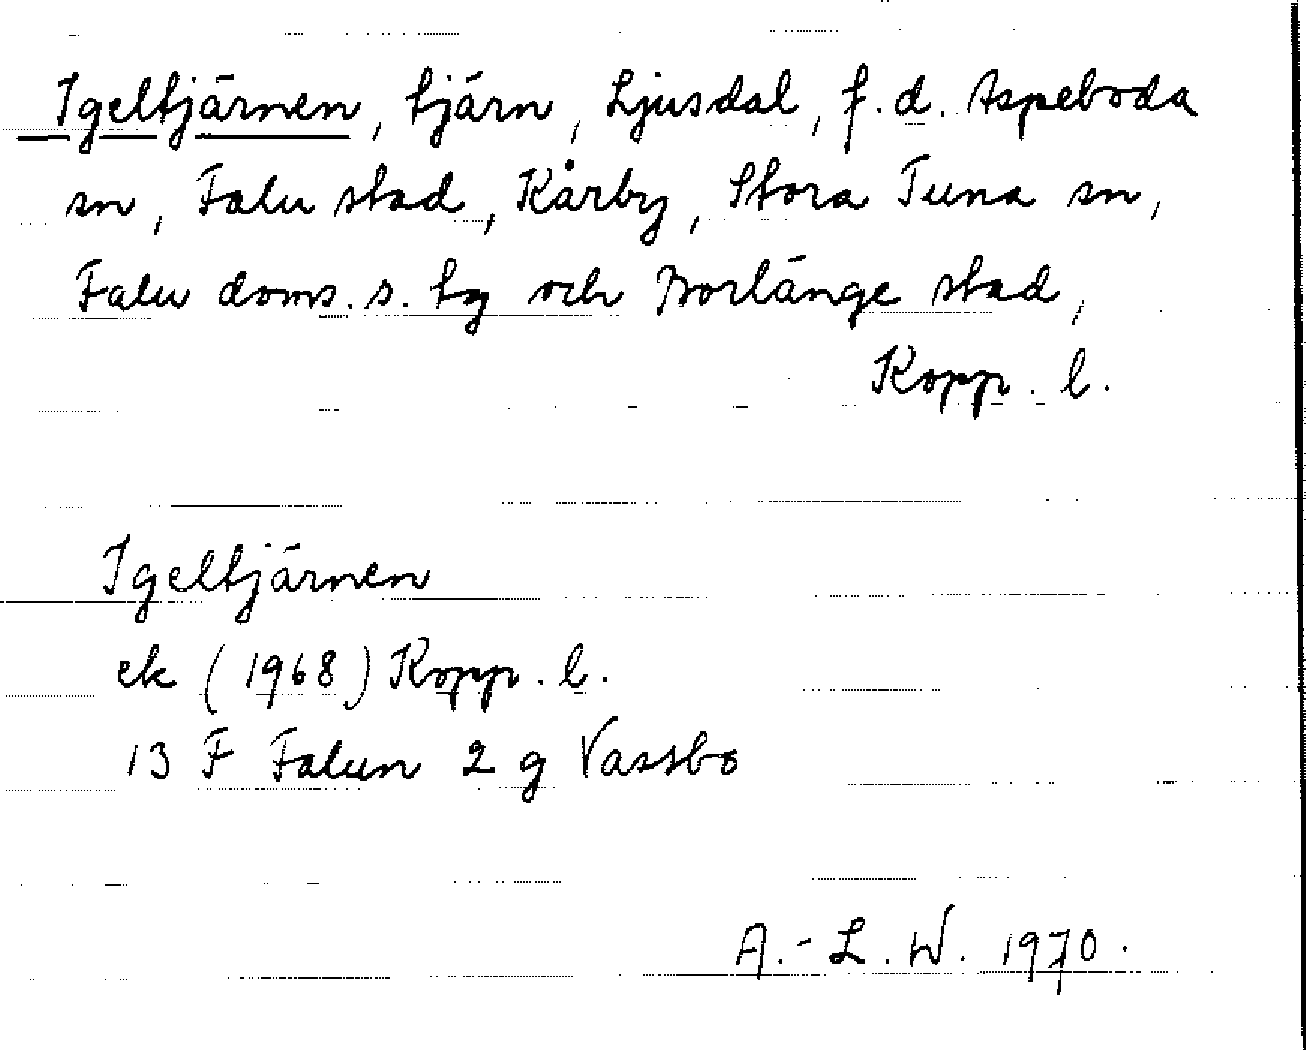 Igeltjärnen, tjärn, Ljusdal, f.d. Aspeboda
sn, Falu stad, Kårby, Stora Tuna sn,
Falu doms.s. tg och Borlänge stad,
Kopp. l.
Igeltjärnen
ek (1968) Kopp. l.
13 F Falun 2 g Vassbo
A.-L. W. 1970.